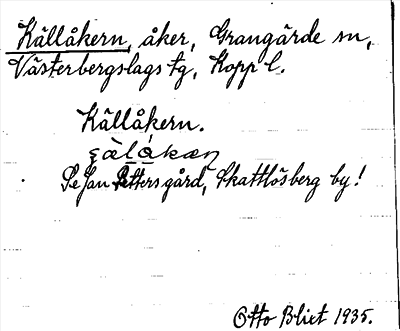 Källåkern, åker, Grangärde sn,
Västerbergslags tg, Kopp l.
Källåkern.
çälåkan
Se Jan Pettersgård, Skattlösberg by!
Otto Blixt 1935.